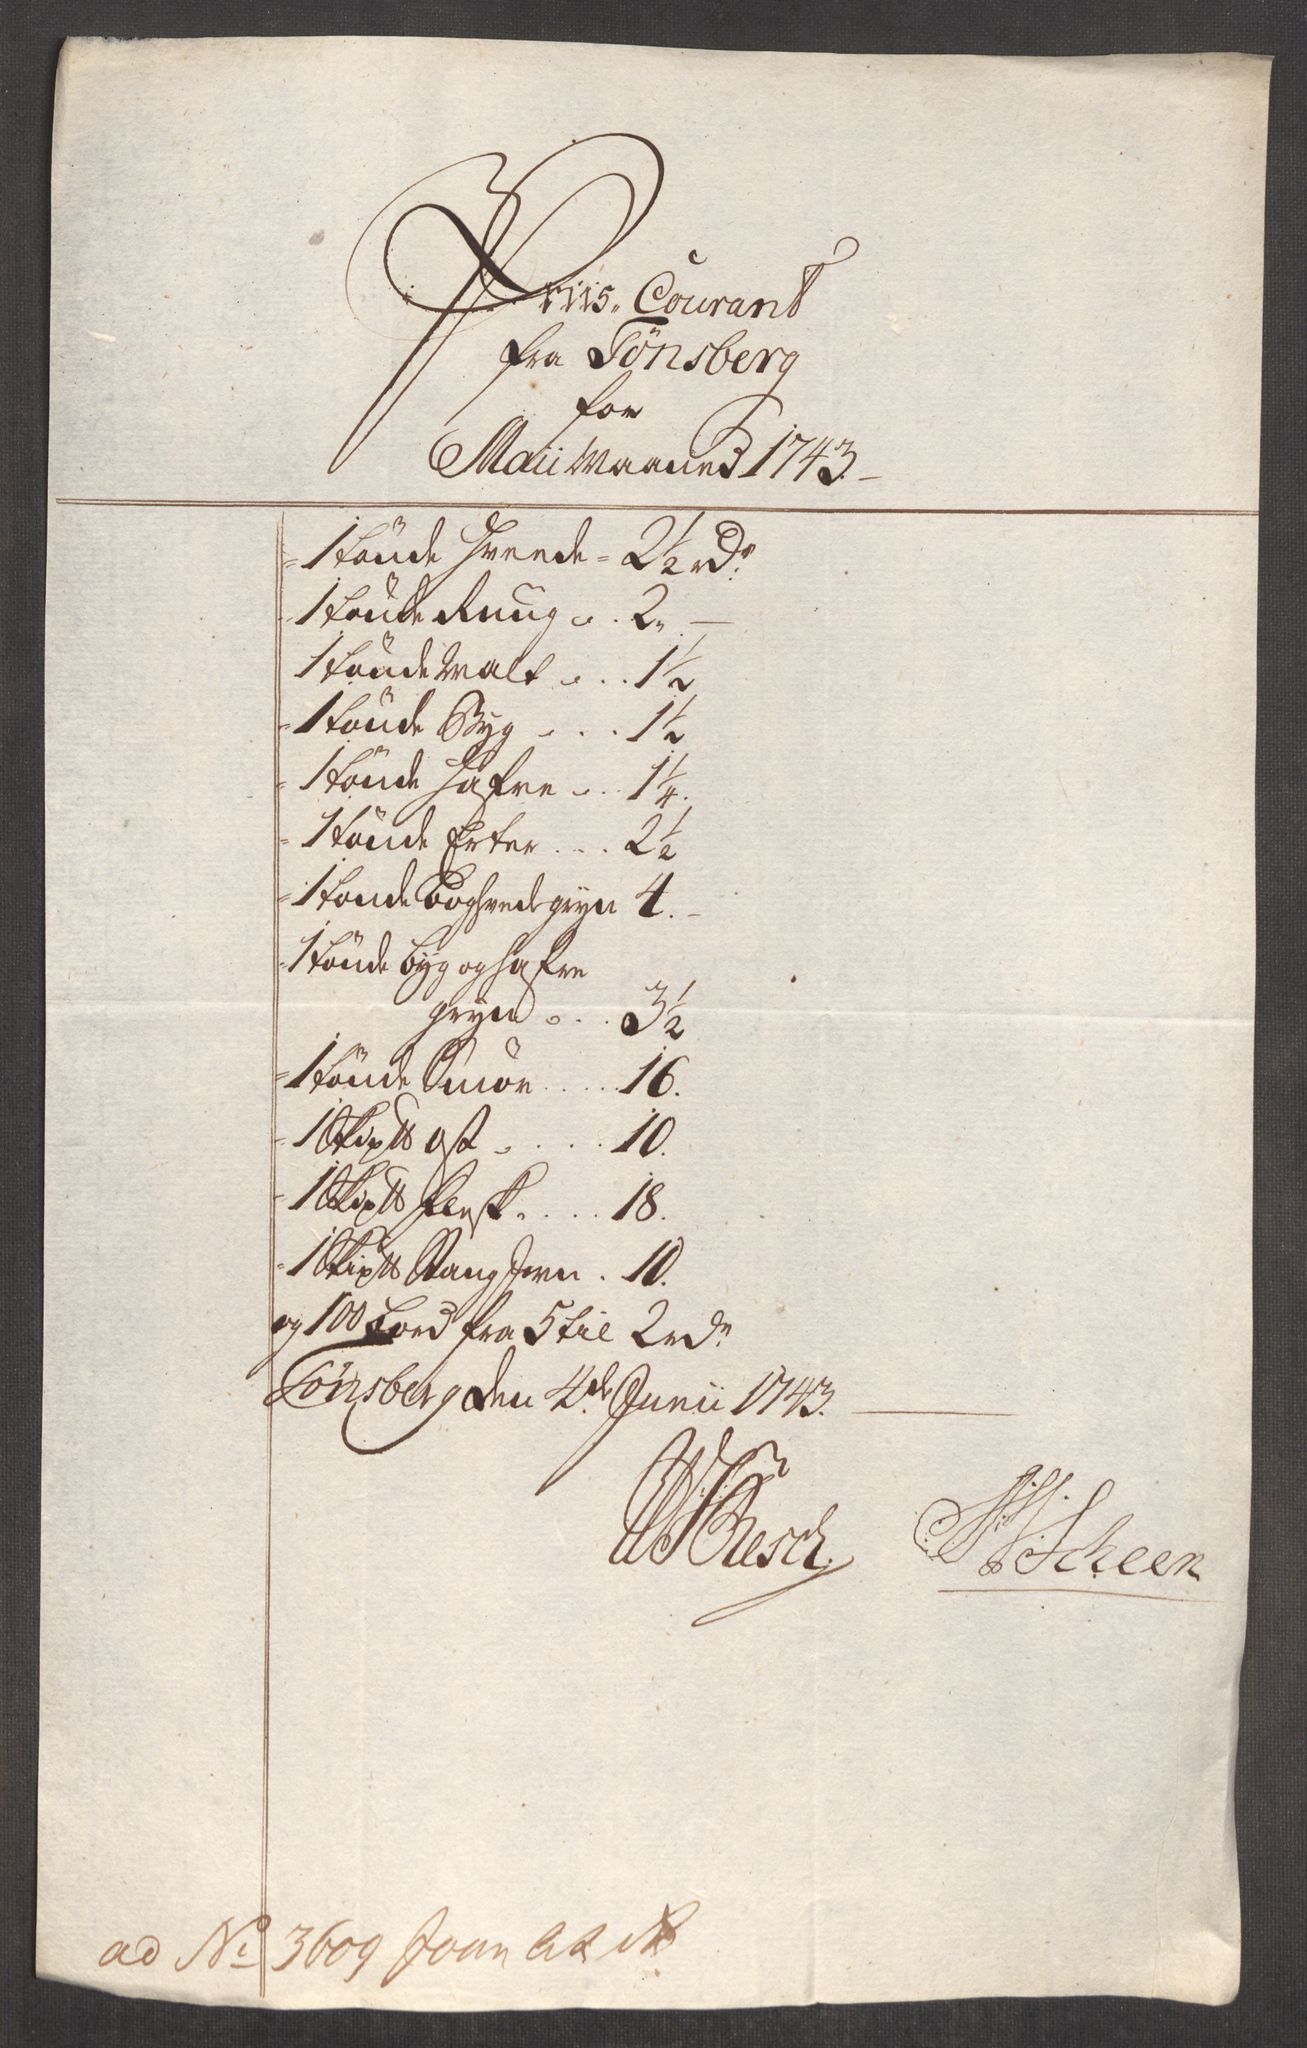 Priis Courant
fra Tönsberg
for
Maii Maaned 1743.
1 tönde Hveede 2½ rdr
1 tönde Ruug 2
1 tönde Malt 1½
1 tönde Byg 1½
1 tönde Hafre 1¼
1 tönde Erter 2½
1 tönde Boghvedegryn 4
1 tönde byg og hafre
gryn 3½
1 tönde Smör 16.
1 Skip℔ Ost 10.
1 Skip℔ Flesk 18.
1 Skip℔ Stang Jern 10.
og 100 fra 5 til 2 rdr
Tönsberg den 4de Junii 1743.
Resch. Scheen
ad No 3609